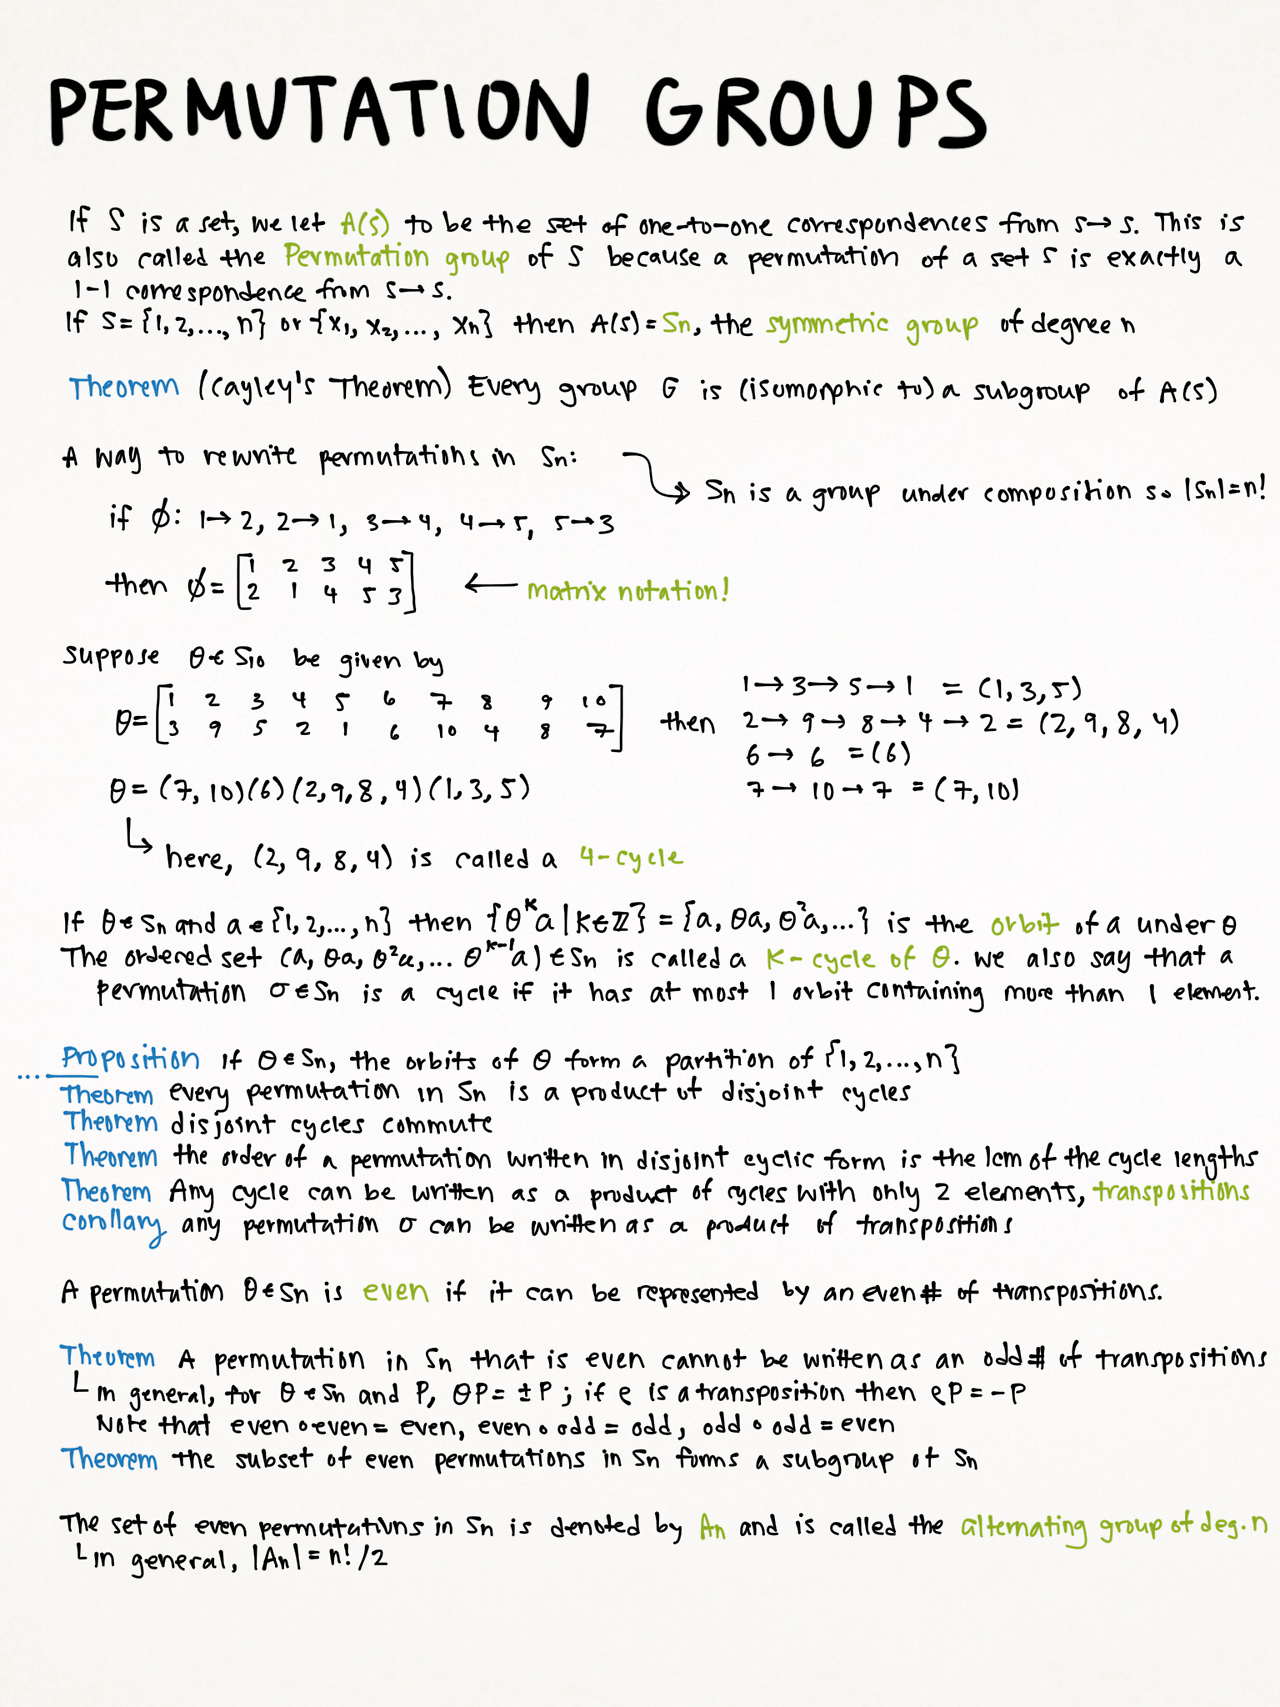 PERMUTATION GROUPS
If S is a set, we let A(S) to be the set of one-to-one correspondences from S→S. This is
also called the Permutation group of S because a permutation of a set S is exactly a
1-1 correspondence from S→S.
If S={1,2,..., n} or {x₁, x₂,..., xₙ} then A(S)=Sₙ, the symmetric group of degree n
Theorem (Cayley's Theorem) Every group G is (isomorphic to) a subgroup of A(S)
A way to rewrite permutations in Sₙ:
→ Sₙ is a group under composition so |Sₙ|=n!
if ϕ: 1→2, 2→1, 3→4, 4→5, 5→3
then ϕ= [1 2 3 4 5
2 1 4 5 3] ← matrix notation!
Suppose θ∈S₁₀ be given by
θ= [1 2 3 4 5 6 7 8 9 10
3 9 5 2 1 6 10 4 8 7] then
1→3→5→1 = (1,3,5)
2→9→8→4→2 = (2,9,8,4)
6→6 =(6)
7→10→7 =(7,10)
θ= (7,10)(6)(2,9,8,4)(1,3,5)
↳ here, (2,9,8,4) is called a 4-cycle
If θ∈Sₙ and a∈{1,2,...,n} then {θᵏa|k∈ℤ} = {a, θa, θ²a,...} is the orbit of a under θ
The ordered set (a, θa, θ²a,... θᵏ⁻¹a)∈Sₙ is called a K-cycle of θ. we also say that a
permutation σ∈Sₙ is a cycle if it has at most 1 orbit containing more than 1 element.
Proposition If θ∈Sₙ, the orbits of θ form a partition of {1,2,...,n}
Theorem every permutation in Sₙ is a product of disjoint cycles
Theorem disjoint cycles commute
Theorem the order of a permutation written in disjoint cyclic form is the lcm of the cycle lengths
Theorem Any cycle can be written as a product of cycles with only 2 elements, transpositions
corollary any permutation σ can be written as a product of transpositions
A permutation θ∈Sₙ is even if it can be represented by an even # of transpositions.
Theorem A permutation in Sₙ that is even cannot be written as an odd # of transpositions
└ in general, for θ∈Sₙ and P, θP=±P; if ρ is a transposition then ρP=-P
Note that even∘even=even, even∘odd=odd, odd∘odd=even
Theorem the subset of even permutations in Sₙ forms a subgroup of Sₙ
The set of even permutations in Sₙ is denoted by Aₙ and is called the alternating group of deg. n
└ in general, |Aₙ|=n!/2